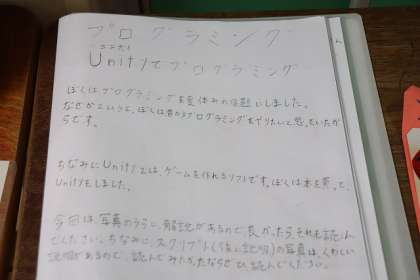 プログラミング
Unityでプログラミング
ぼくはプログラミングを夏休みの宿題にしました。
なぜかというと、ぼくは昔からプログラミングをやりたいと思っていたか
らです。
ちなみにUnityとは、ゲームを作れるソフトです。ぼくは本を買って、
Unityをしました。
今回は、写真のうらに、解説があるので、良かったらそれも読ん
でください。ちなみに、スクリプト(後に説明)の写真は、くわしい
説明があるので、読んでみたかったらぜひ読んでください。